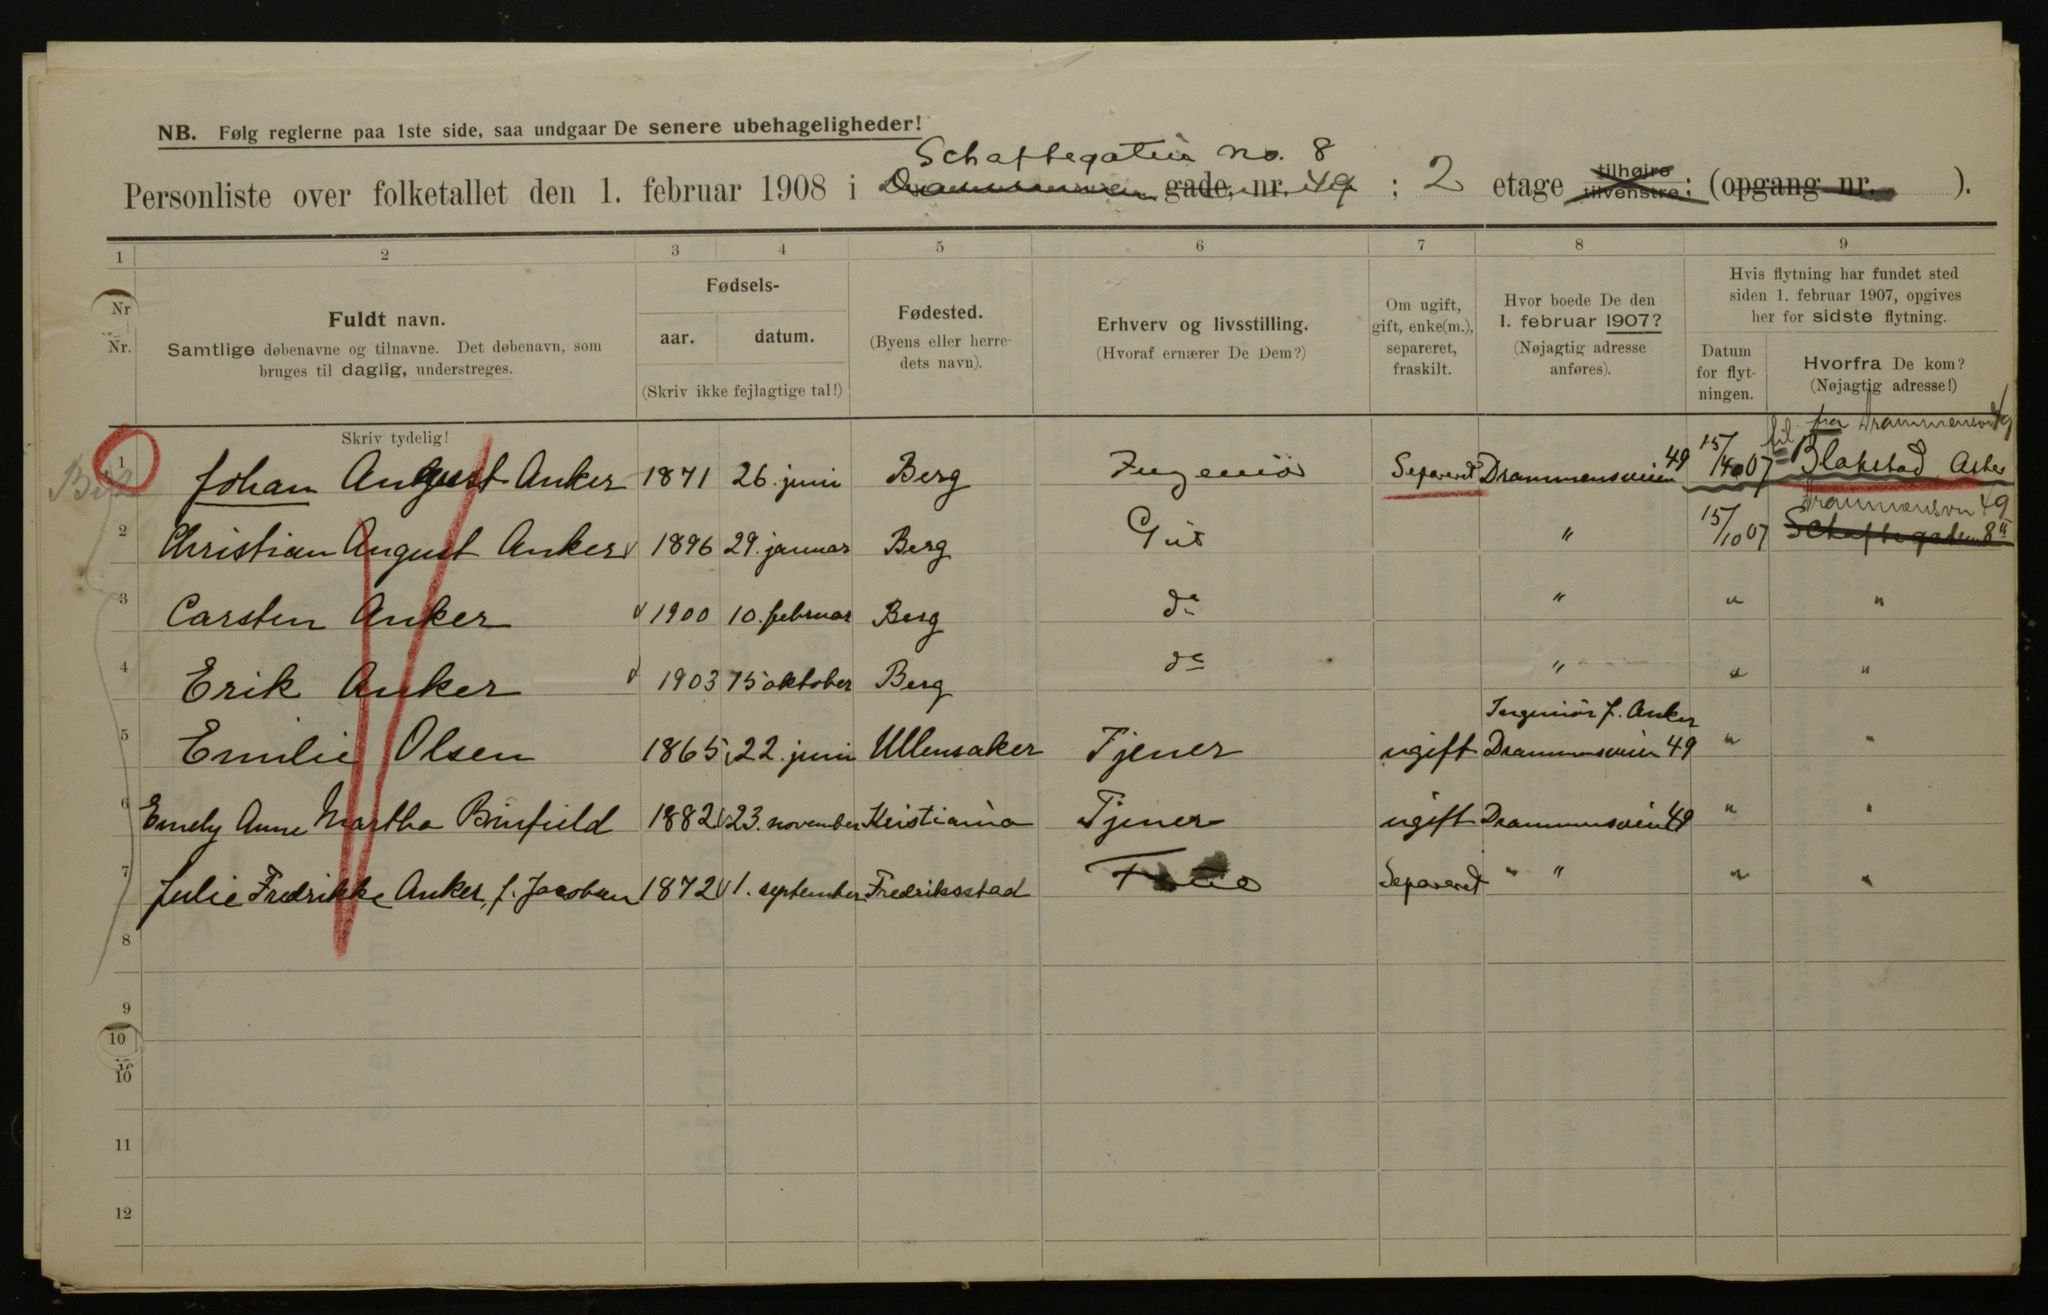 NB. Følg reglerne paa 1ste side, saa undgaar De senere ubehageligheder!
Schaftegaten no. 8
Personliste over folketallet den 1. februar 1908 i Drammensveien gade, nr. 49 ; 2 etage tilhøire tilvenstre ; (opgang nr. ).
1 2 3 4 5 6 7 8 9
Nr Nr.
Fuldt navn.
Samtlige døbenavne og tilnavne. Det døbenavn, som
bruges til daglig, understreges.
Fødsels-
aar. datum.
(Skriv ikke fejlagtige tal!)
Fødested.
(Byens eller herre-
dets navn).
Erhverv og livsstilling.
(Hvoraf ernærer De Dem?)
Om ugift,
gift, enke(m.),
separeret,
fraskilt.
Hvor boede De den
1. februar 1907?
(Nøjagtig adresse
anføres).
Hvis flytning har fundet sted
siden 1. februar 1907, opgives
her for sidste flytning.
Datum
for flyt-
ningen.
Hvorfra De kom?
(Nøjagtig adresse!)
Skriv tydelig!
fra Drammensv 49
1 Johan August Anker 1871 26. juni Berg Ingeniør Separeret Drammensveien 49 15/10 07 Blakstad Asker
Drammensvn 49
2 Christian August Anker 1896 29. januar Berg Gut " 15/10 07 Schaftegaden 8 II
3 Carsten Anker 1900 10. februar Berg do " " "
4 Erik Anker 1903 15 oktober Berg do " " "
Ingeniør J. Anker
5 Emilie Olsen 1865 22. juni Ullensaker Tjener ugift Drammensveien 49 " "
6 Emely Anne Martha Binfield 1882 23. november Kristiania Tjener ugift Drammensveien 49 " "
7 Julie Fredrikke Anker, f. Jacobsen 1872 1. september Fredriksstad Separeret " " " "
8
9
10
10
11
12